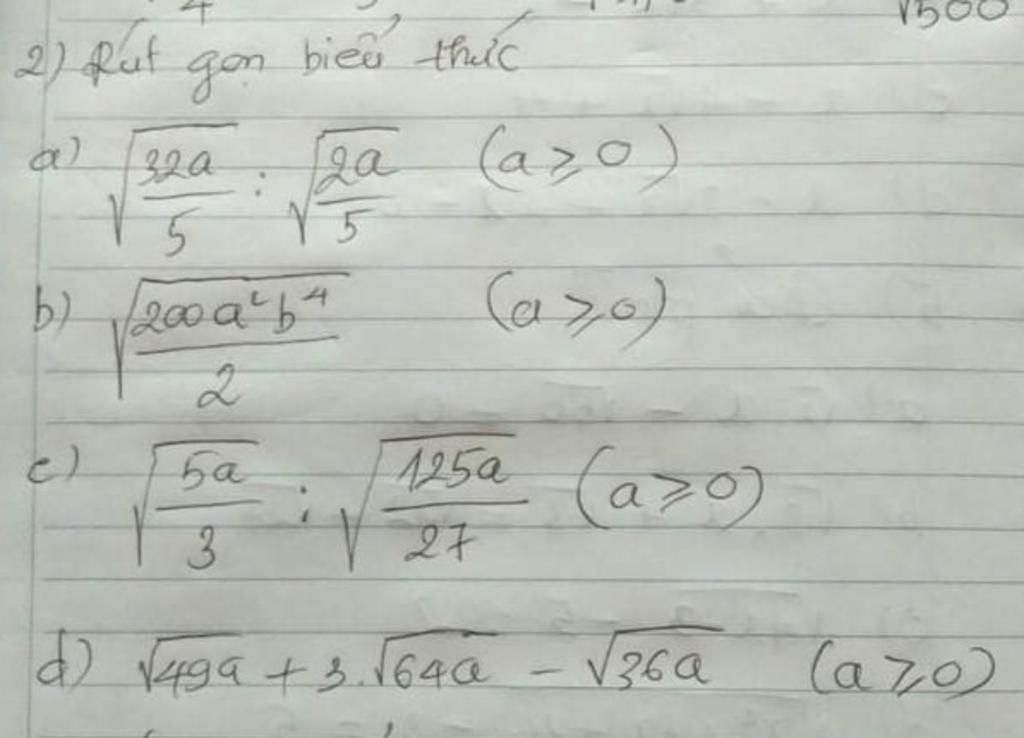 √500
2) Rút gọn biểu thức
a) √(32a/5) : √(2a/5) (a ⩾ 0)
b) √(200a²b⁴/2) (a ⩾ 0)
c) √(5a/3) : √(125a/27) (a ⩾ 0)
d) √49a + 3.√64a - √36a (a ⩾ 0)